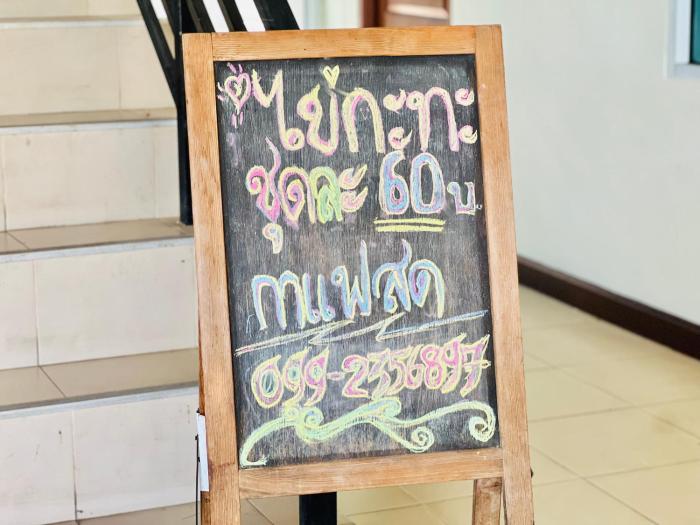 ไข่กะทะ
ชุดละ 60 บ
กาแฟสด
099-2356897